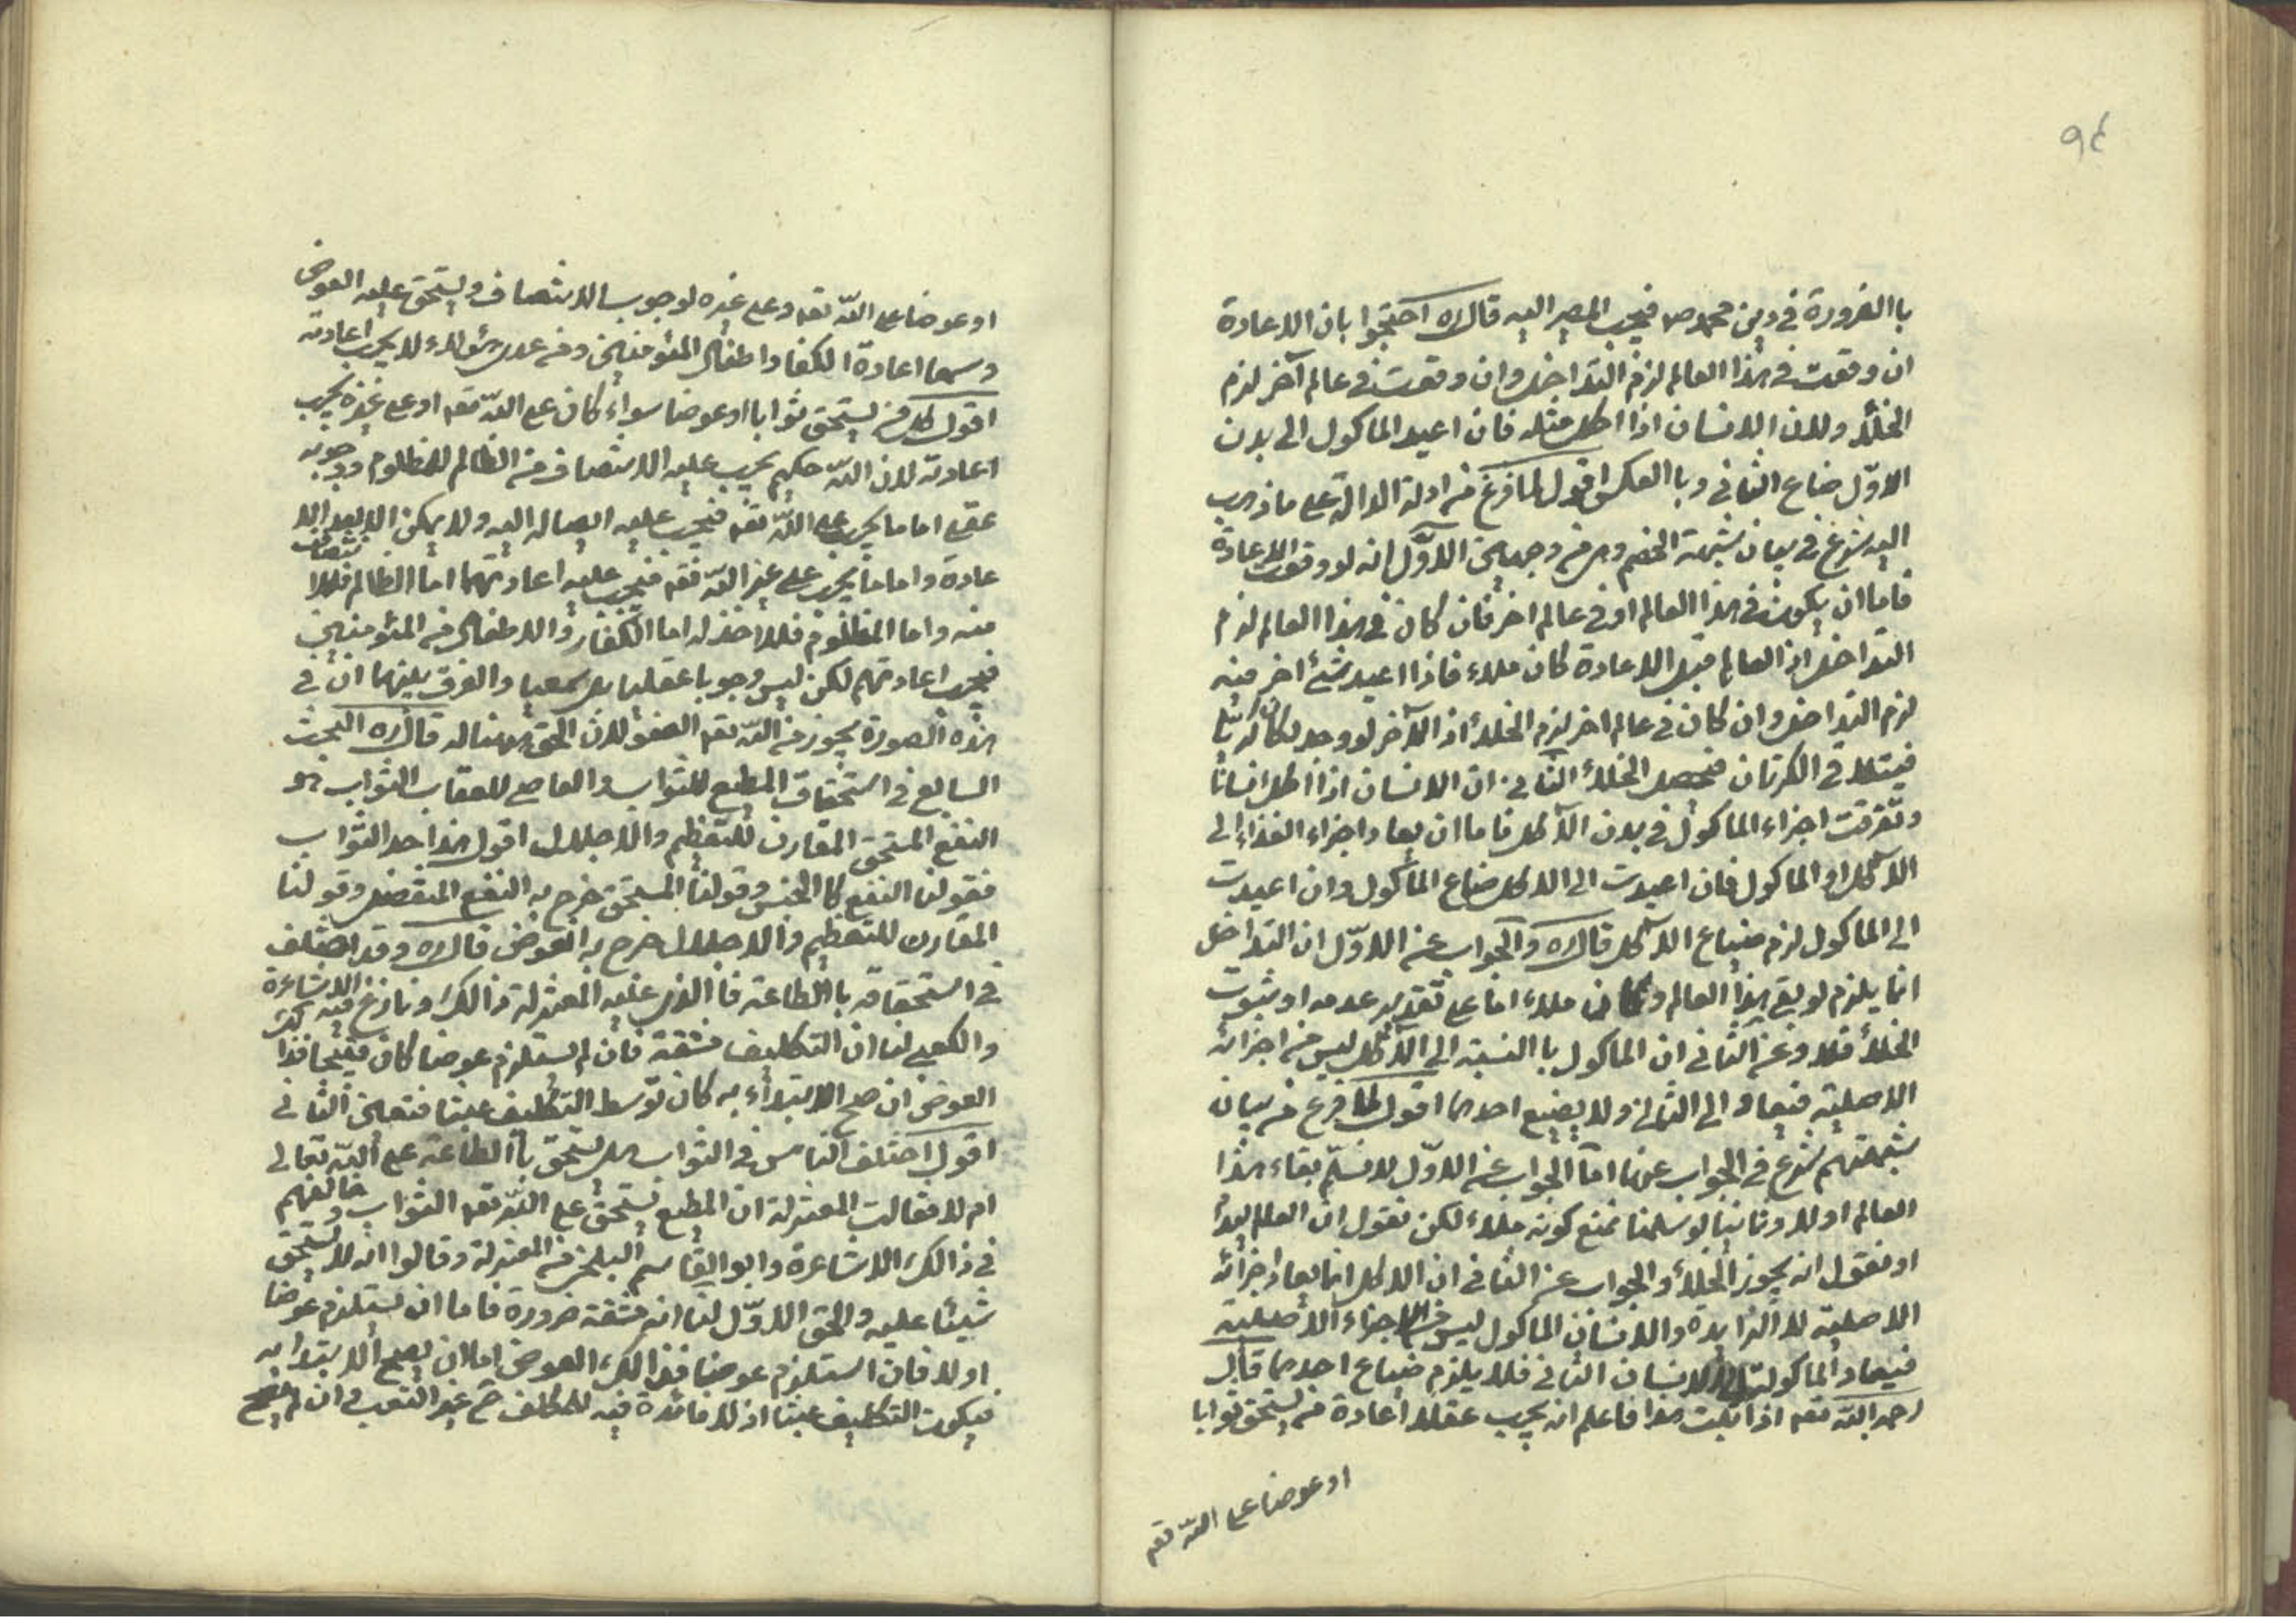 ٩٤
باالضرورة في دين محمد ص فيجب المصير اليه قال ره احتجوا بان الاعادة
ان وقعت في هذا العالم لزم التداخل وان وقعت في عالم آخر لزم
الخلأ ولان الانسان اذا اكل مثله فان اعيد الماكول الى بدن
الاوّل ضاع الثاني وباالعكس اقول لما فرغ من ادلة الدالة على ما ذهب
اليه شرع في بيان شبهة الخصم وهي من وجهين الاوّل انه لو وقعت الاعادة
فاما ان يكون في هذا العالم او في عالم اخر فان كان في هذا العالم لزم
التداخل اذ العالم قبل الاعادة كان ملاء فاذا اعيد شئ اخر منه
لزم التداخل وان كان في عالم اخر لزم الخلأ اذ الآخر لو وجد لكان كريا
فيتلاقى الكرتان فيحصل الخلأ الثاني ان الانسان اذا اكل انسانا
وتفرقت اجزاء الماكول في بدن الآكل فاما ان يعاد اجزاء الغذاء الى
الآكل او الماكول فان اعيدت الى الاكل ضاع الماكول وان اعيدت
الى الماكول لزم ضياع الآكل قال ره والجواب عن الاوّل ان التداخل
انما يلزم لو بقي هذا العالم وكان ملاء اما على تقدير عدمه او ثبوت
الخلأ فلا وعن الثاني ان الماكول باالنسبة الى الآكل ليس من اجزائه
الاصلية فيعاد الى الثاني ولا يضيع احدهما اقول لما فرغ من بيان
شبهتهم شرع في الجواب عنها امّا الجواب عن الاوّل لا نسلّم بقاء هذا
العالم اولا وثانيا لو سلمنا نمنع كونه ملاء لكن نقول ان العالم
او نقول انه يجوز الخلأ والجواب عن الثاني ان الاكل انما يعاد اجزائه
الاصلية لا الزايدة والانسان الماكول ليس من الاجزاء الاصلية
فيعاد الماكول الى الانسان الثاني فلا يلزم ضياع احدهما قال
رحمه الله تعه اذا ثبت هذا فاعلم انه يجب عقلا اعادة من يستحق ثوابا
او عوضا على الله تعه
او عوضا على الله تعه وعلى غيره لوجوب الانتصاف ويستحق عليه العوض
وسمعا اعادة الكفار واطفال المؤمنين ومن عدى هؤلاء لا يجب اعادته
اقول كل من يستحق ثوابا او عوضا سواء كان على الله تعه او على غيره يجب
اعادته لان الله حكيم يجب عليه الانتصاف من الظالم للمظلوم ووجوبه
عقلي اما ما يجب على الله تعه فيجب عليه ايصاله اليه ولا يمكن الا بعد الا
عادة واما ما يجب على غير الله تعه فيجب عليه اعادتهما اما الظالم فلانتصاف
منه واما المظلوم فللاخذ له اما الكفار والاطفال من المؤمنين
فيجب اعادتهم لكن ليس وجوبا عقليا بل سمعيا والفرق بينهما ان في
هذه الصورة يجوز من الله تعه العفو لان الحق هنا له قال ره البحث
السابع في استحقاق المطيع للثواب والعاصي للعقاب الثواب هو
النفع المستحق المقارن للتعظيم والاجلال اقول هذا حد الثواب
فقولنا النفع كا الجنس وقولنا المستحق خرج به النفع المتفضل وقولنا
المقارن للتعظيم والاجلال خرج به العوض قال ره وقد اختلف
في استحقاقه باالطاعة فا الذي عليه المعتزلة ذالك ونازع فيه الاشاعرة
والكعبي لنا ان التكليف مشقة فان لم يستلزم عوضا كان قبيحا فذا لك
العوض ان صح الابتداء به كان توسط التكليف عبثا فتعين الثاني
اقول اختلف الناس في الثواب هل يستحق باالطاعة على الله تعالى
ام لا فقالت المعتزلة ان المطيع يستحق على الله تعه الثواب وخالفهم
في ذالك الاشاعرة وابو القاسم البلخي من المعتزلة وقالوا انه لا يستحق
شيئا عليه والحق الاوّل لنا انه مشقة ضرورة فاما ان يستلزم عوضا
او لا فان استلزم عوضا فذالك العوض اما ان يصح الابتدا به
فيكون التكليف عبثا اذ لا فائدة فيه للمكلف ح غير التعب وان لم يصح